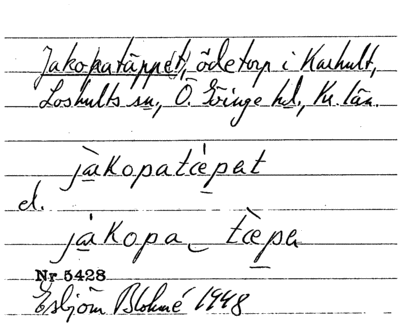 Jakopatäppet, ödetorp i Karhult,
Loshults sn, Ö. Göinge hd, Kr. län.
jàkopatæ̀pat
el.
jàkopa‿tæ̀pa
Nr 5428
Esbjörn Blohmé 1948